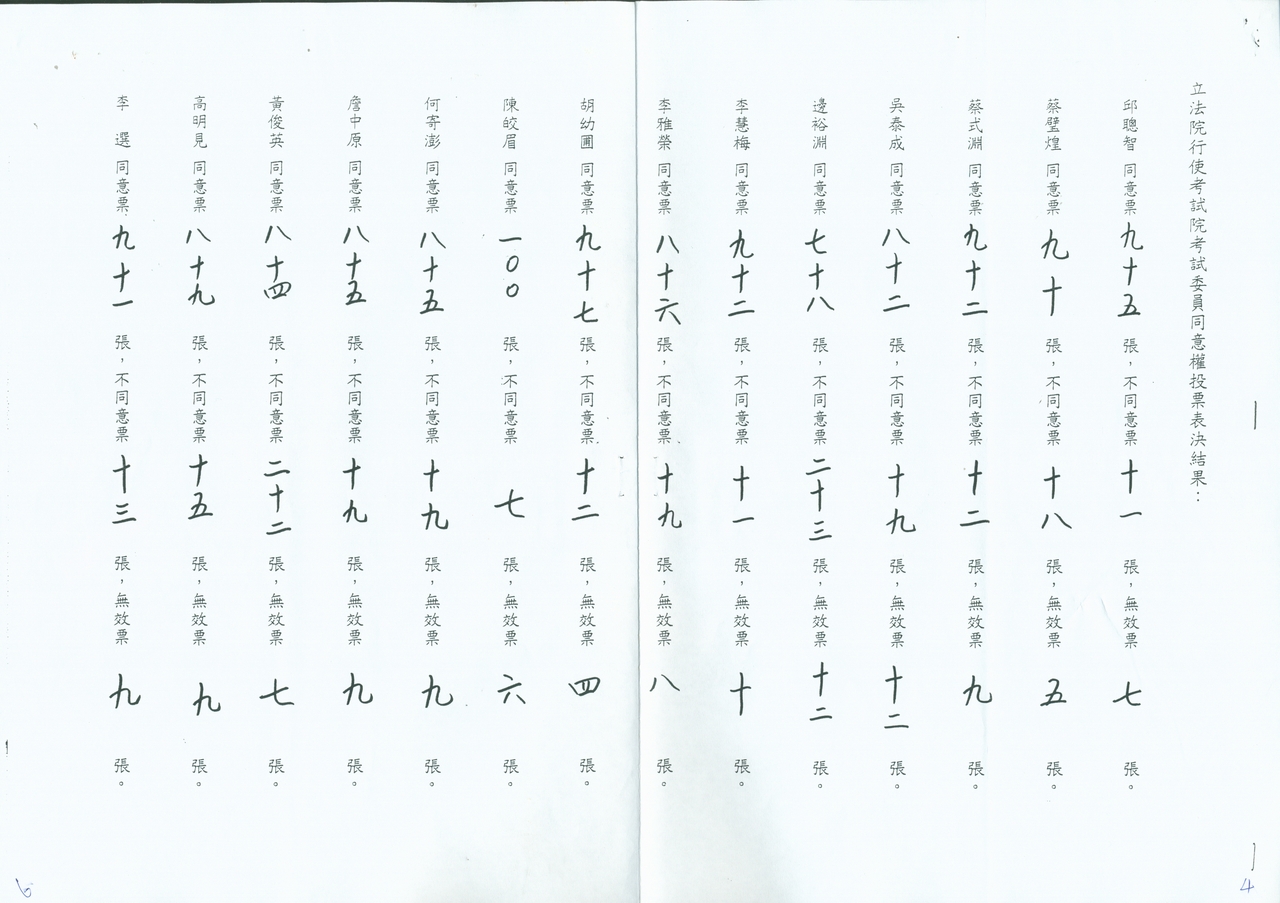 立法院行使考試院考試委員同意權投票表決結果：
邱聰智 同意票 九十五 張，不同意票 十一 張，無效票 七 張。
蔡璧煌 同意票 九十 張，不同意票 十八 張，無效票 五 張。
蔡式淵 同意票 九十二 張，不同意票 十二 張，無效票 九 張。
吳泰成 同意票 八十二 張，不同意票 十九 張，無效票 十二 張。
邊裕淵 同意票 七十八 張，不同意票 二十三 張，無效票 十二 張。
李慧梅 同意票 九十二 張，不同意票 十一 張，無效票 十 張。
李雅榮 同意票 八十六 張，不同意票 十九 張，無效票 八 張。
胡幼圃 同意票 九十七 張，不同意票 十二 張，無效票 四 張。
陳皎眉 同意票 一〇〇 張，不同意票 七 張，無效票 六 張。
何寄澎 同意票 八十五 張，不同意票 十九 張，無效票 九 張。
詹中原 同意票 八十五 張，不同意票 十九 張，無效票 九 張。
黃俊英 同意票 八十四 張，不同意票 二十二 張，無效票 七 張。
高明見 同意票 八十九 張，不同意票 十五 張，無效票 九 張。
李 選 同意票 九十一 張，不同意票 十三 張，無效票 九 張。
4
6